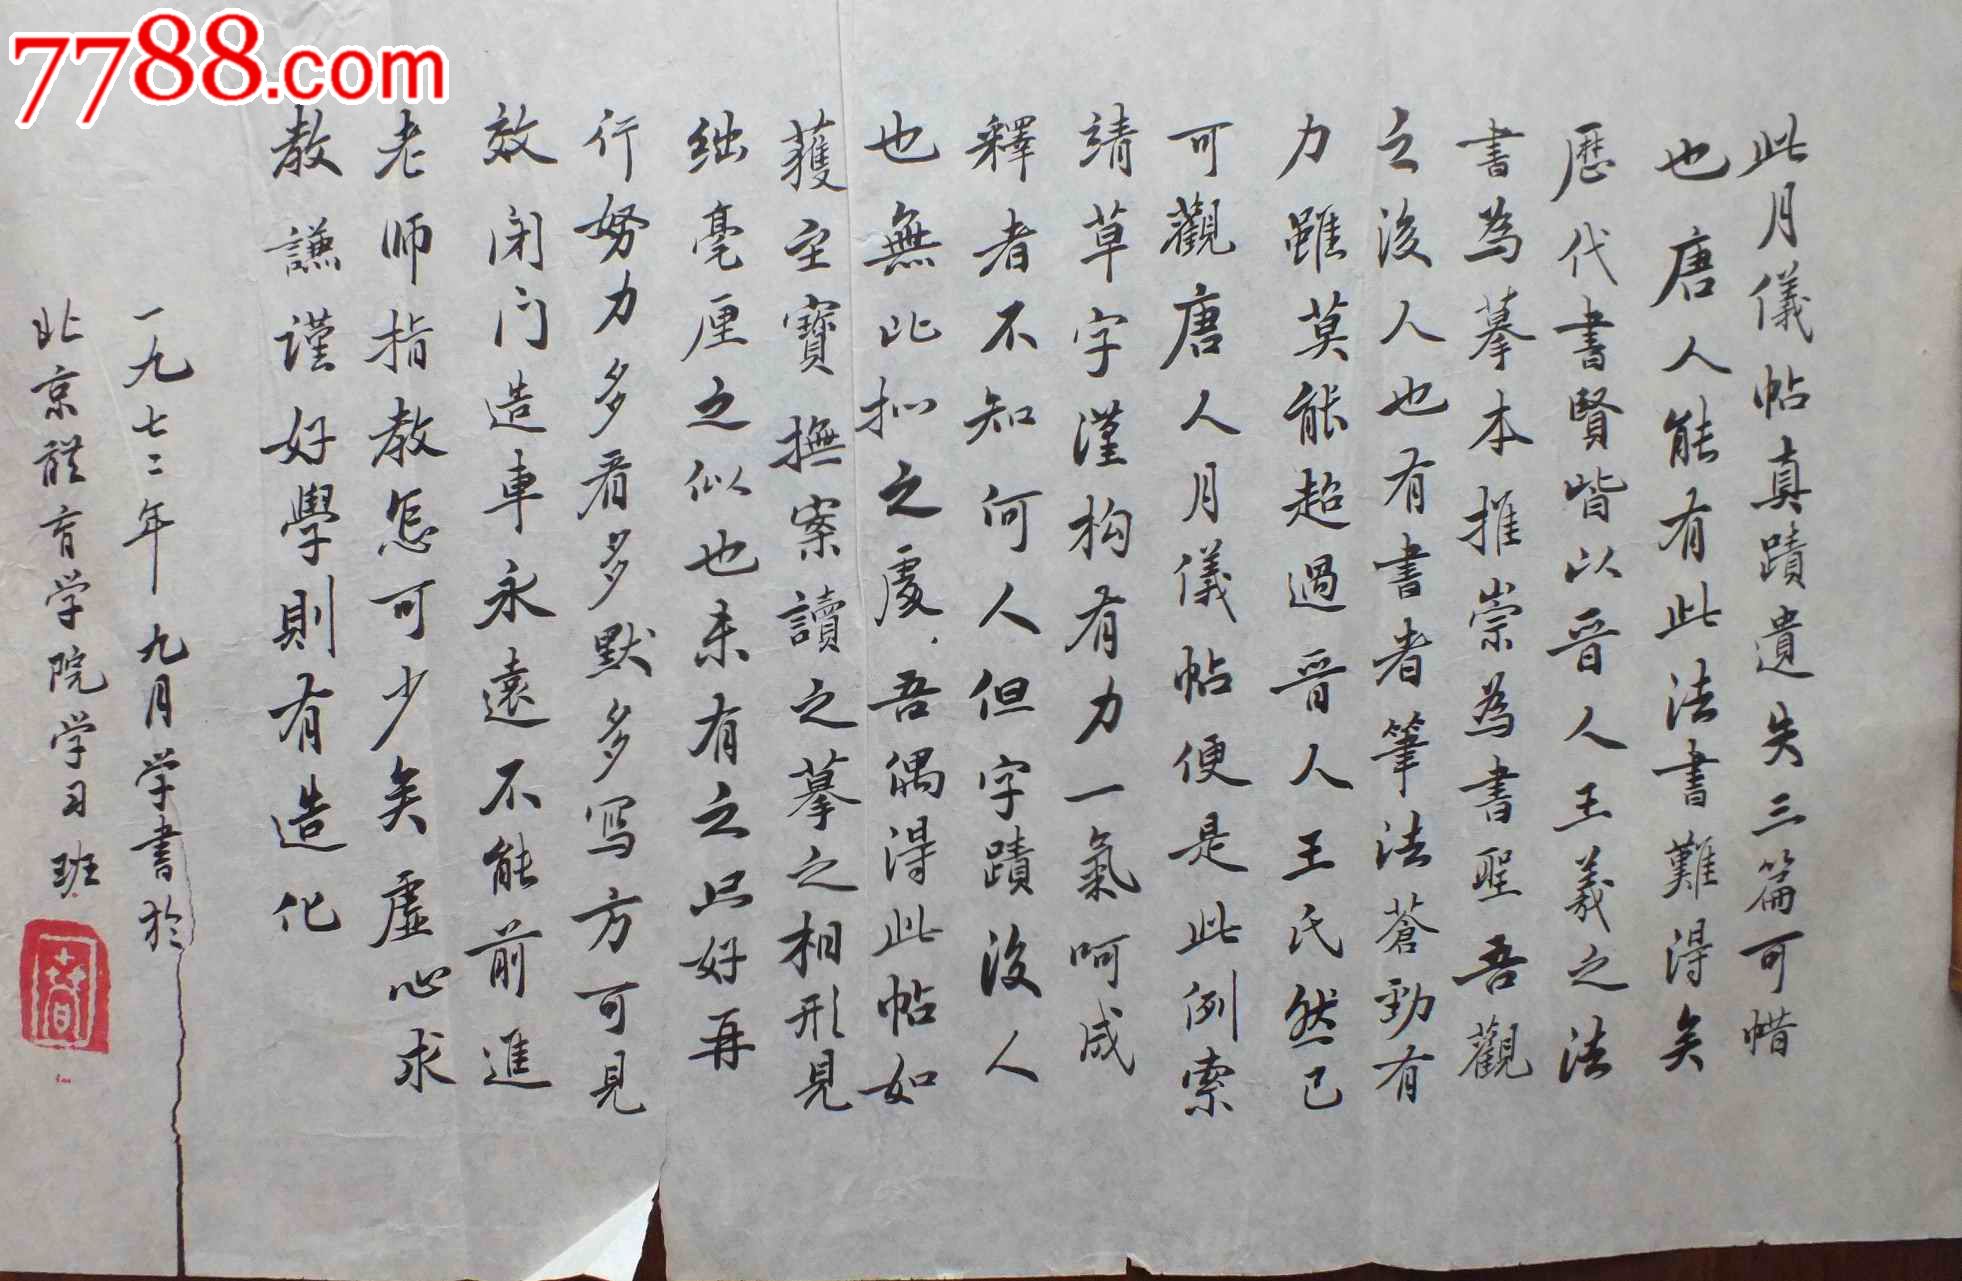 7788.com
此月儀帖真蹟遺失三篇可惜
也唐人能有此法書難得矣
歷代書賢皆以晉人王羲之法
書為摹本推崇為書聖吾觀
之後人也有書者筆法蒼勁有
力雖莫能超過晉人王氏然已
可觀唐人月儀帖便是此例索
靖草字謹构有力一氣呵成
釋者不知何人但字蹟後人
也無比拟之處吾偶得此帖如
獲至寶撫案讀之摹之相形見
绌毫厘之似也未有之只好再
行努力多看多默多写方可見
效闭门造車永遠不能前進
老师指教怎可少矣虚心求
教謙谨好學則有造化
一九七二年九月学書於
北京體育学院学习班